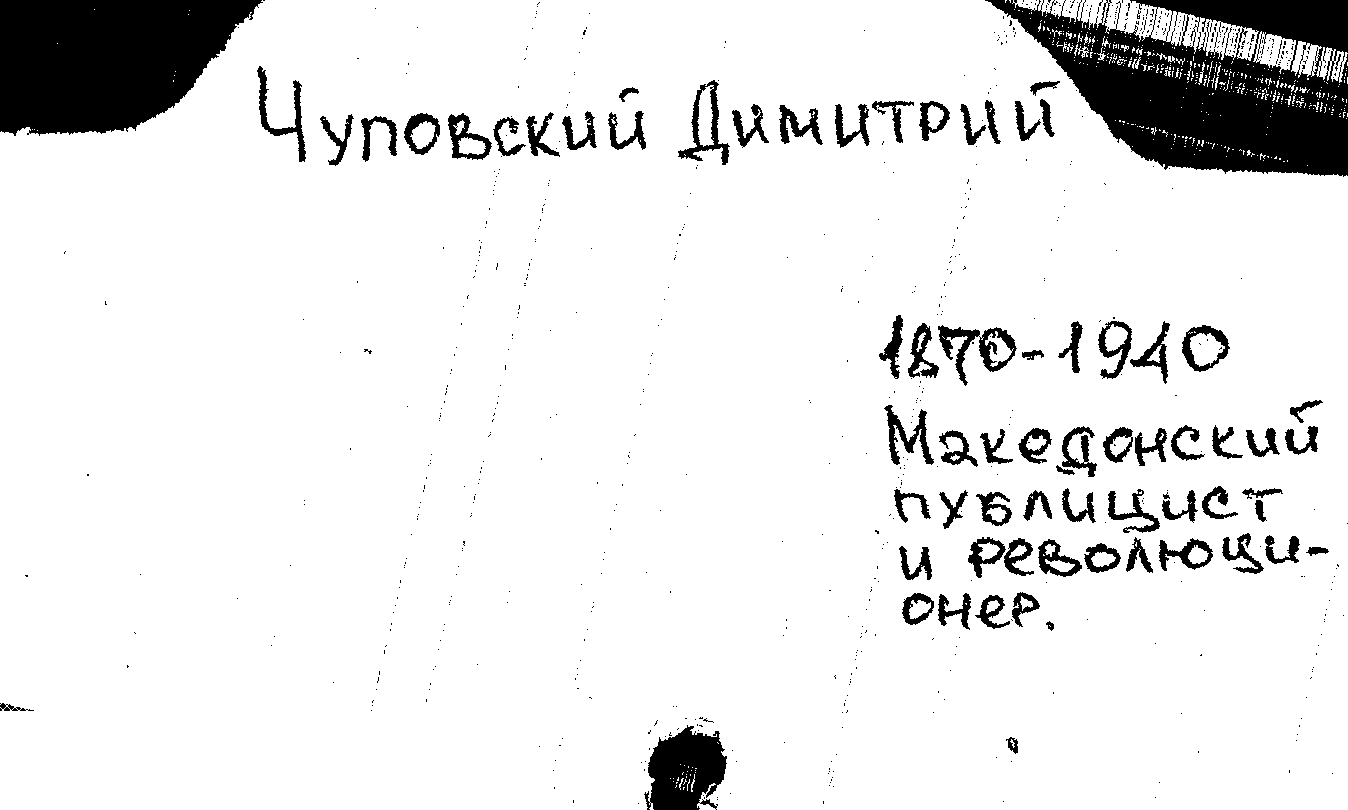 Чуповский Димитрий
1870-1940
Македонский
публицист
и революци-
онер.